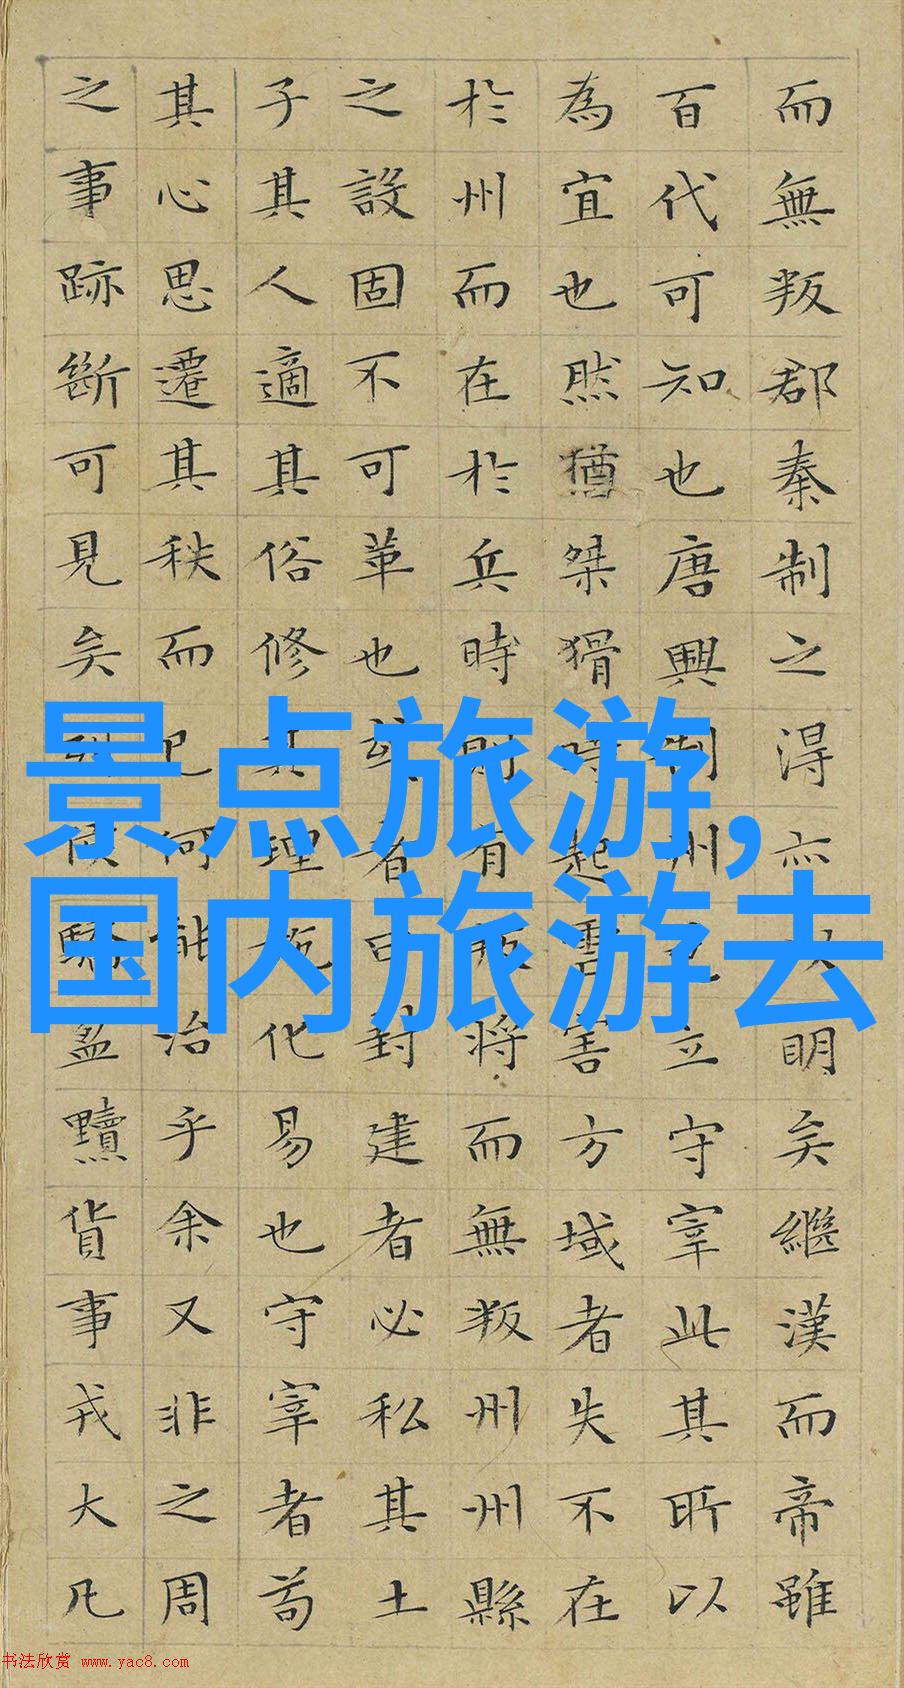 而無叛郡秦制之得亦以明矣繼漢而帝雖
百代可知也唐興制州邑立守宰此其所以
為宜也然猶桀猾時起虐害方域者失不在
於州而在於兵時則有叛將而無叛州州縣
之設固不可革也或者曰封建者必私其土
子其人適其俗修其理施化易也守宰者苟
其心思遷其秩而已何能治乎余又非之周
之事跡斷可見矣列侯驕盈黷貨事戎大凡
景点旅游,
国内旅游去
书法欣赏 www.yac8.com